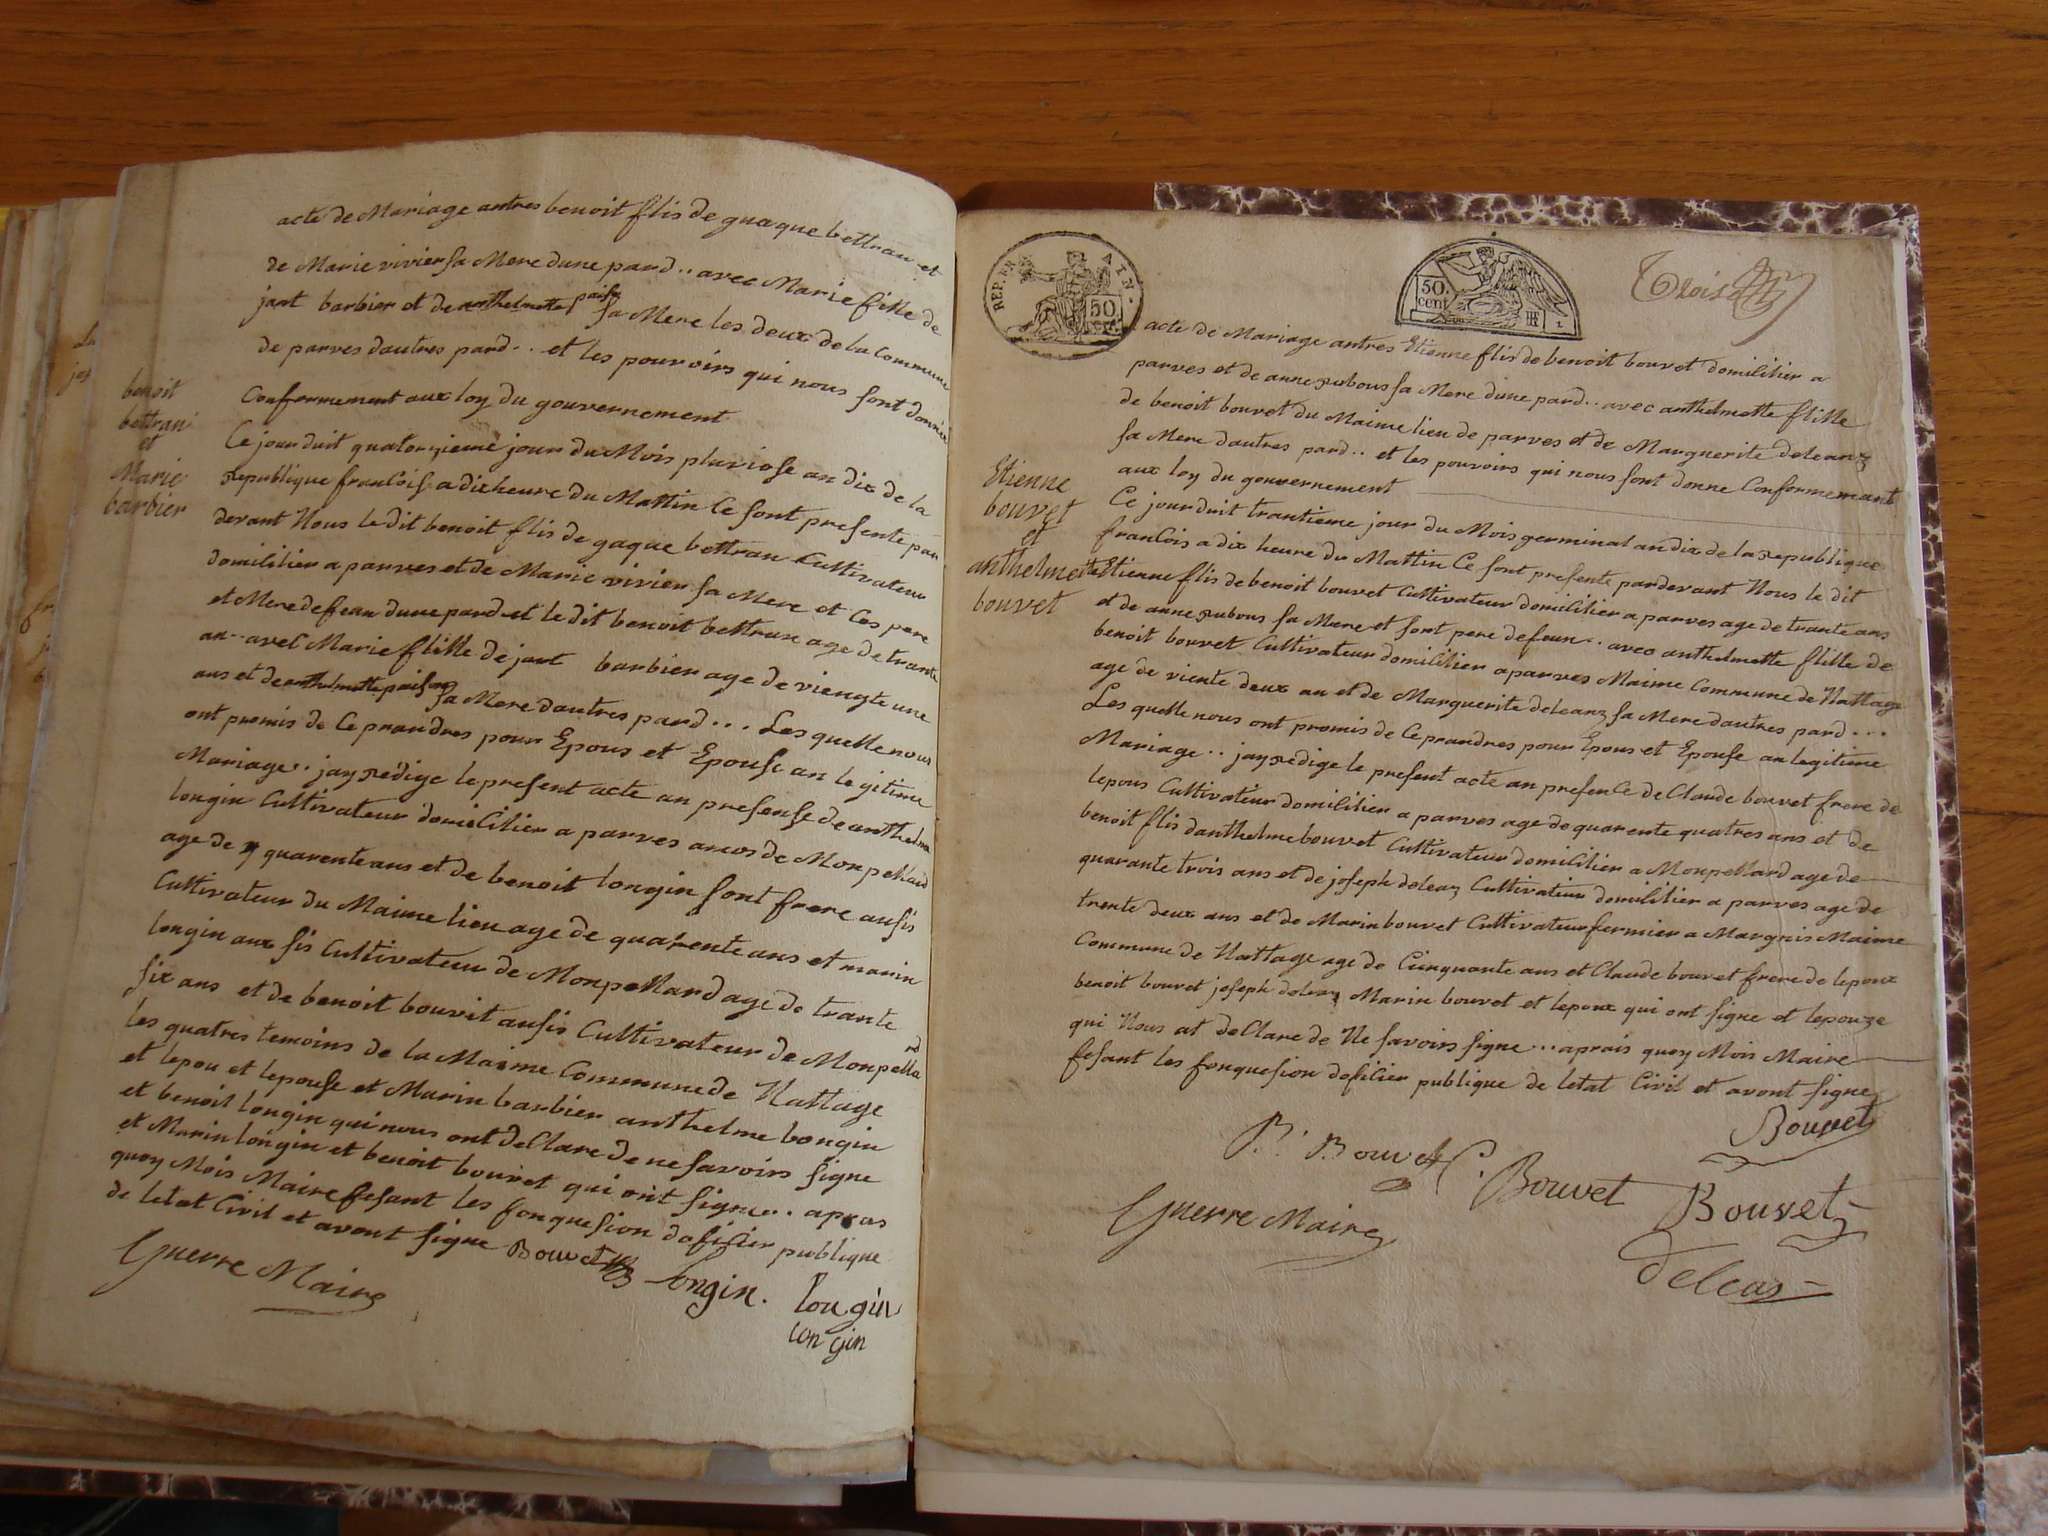 acte de Mariage antres benoit flis de guaque bettran et
de Marie vivier sa Mere dune pard .. avec Marie fille de
jant barbier et de anthelmette paisson sa Mere les deux de la Commune
de parves dautres pard .. et les pourvoirs qui nous sont donnée
Conformement aux loy du gouvernement
benoit
bettran
et
Marie
barbier
Ce jourduit quatorzieme jour du Mois pluviose an dix de la
republique francois a dix heure du Mattin Ce sont presente par
devant Nous le dit benoit flis de gaque bettran Cultivateur
domililier a parves et de Marie vivier sa Mere et Ces pere
et Mere defean dune pard et le dit benoit bettran age de trante
an .. avec Marie flille de jant barbier age de viengte une
ans et de anthelmette paisson sa Mere dautres pard ... Les quelle nous
ont promis de Ce prandres pour Epous et Epouse an legitime
Mariage .. jay redige le present acte an presense de anthelme
longin Cultivateur domicilier a parves amos de Monpellard
age de quarente ans et de benoit longin sont frere ausis
Cultivateur du Maime lieu age de quarente ans et marin
longin aux sis Cultivateur de Monpellard age de trante
six ans et de benoit bouvit ausis Cultivateur de Monpellard
les quatres temoins de la Maime Commune de Nattage
et lepou et lepouse et Marin barbier anthelme longin
et benoit longin qui nous ont deClare de ne savoirs signe
et Marin longin et benoit bouvet qui ont signe .. apras
quoy Mois Maire fesant les fonquesion dofisier publique
de letat Civil et avont signe Bouvet longin. longin
longin
Guerre Maire
REP. FRA. AIN.
50
50.
cent
Trois
acte de Mariage antres Etienne flis de benoit bouvet domilitier a
parves et de anne rubous sa Mere dune pard .. avec anthelmette flille
de benoit bouvet du Maime lieu de parves et de Marguerite deleanz
sa Mere dautres pard .. et les pouvoirs qui nous sont donne Conformemant
aux loy du gouvernement
Etienne
bouvet
et
anthelmette
bouvet
Ce jourduit trantieme jour du Mois germinal an dix de la republique
francois a dix heure du Mattin Ce sont presente pardevant Nous le dit
Etienne flis de benoit bouvet Cultivateur domililier a parves age de trante ans
et de anne rubous sa Mere et sont pere defeun .. avec anthelmette flille de
benoit bouvet Cultivateur domililier a parves Maime Commune de Nattage
age de viente deux an et de Marguerite deleanz sa Mere dautres pard ...
Les quelle nous ont promis de Ce prandres pour Epous et Epouse an legitime
Mariage .. jay redige le present acte an presenCe de Claude bouvet frere de
lepous Cultivateur domililier a parves age de quarente quatres ans et de
benoit flis danthelme bouvet Cultivateur domilitier a Monpellard age de
quarante trois ans et de joseph deleaz Cultivateur domililier a parves age de
trente deux ans et de Marin bouvet Cultivateur fermier a Margnis Maime
Commune de Nattage age de Cinquante ans et Claude bouvet frere de lepoux
benoit bouvet joseph deleaz Marin bouvet et lepoux qui ont signe et lepouze
qui Nous at deClare de Ne savoirs signe ... aprais quoy Mois Maire
fesant les fonquesion dofisier publique de letat Civil et avont signe
Bouvet
B. Bouvet C. Bouvet Bouvet
Guerre Maire
deleas